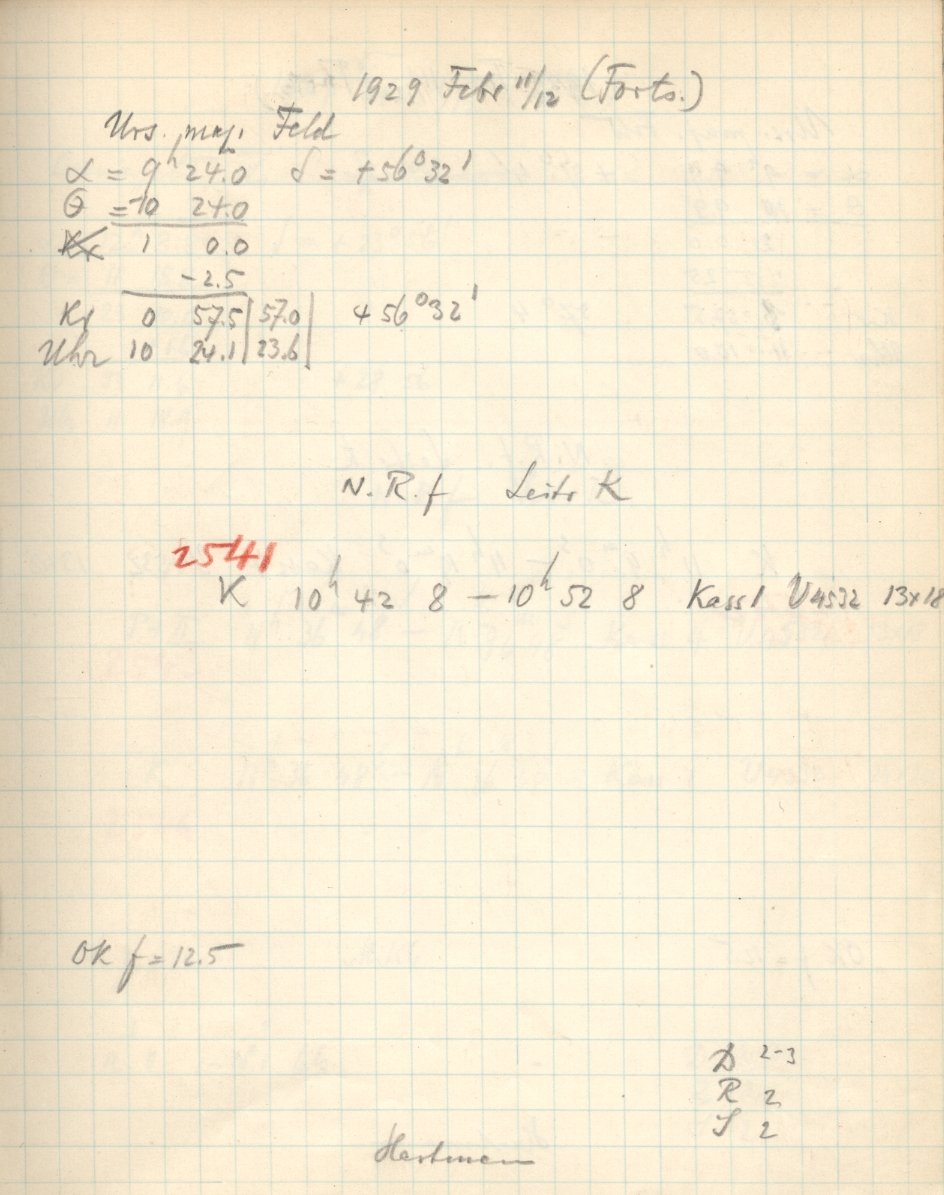 1929 Febr 11/12 (Forts.)
Urs. maj. Feld
α = 9ʰ 24.0 δ = +56° 32'
θ = 10 24.0
1 0.0
-2.5
0 57.5 | 57.0 | +56° 32'
Uhr 10 24.1 | 23.6 |
N. R. f Leitr K
2541
K 10ʰ 42 8 – 10ʰ 52 8 Kass 1 U4532 13x18
OK f = 12.5
D 2-3
R 2
S 2
Hartmann